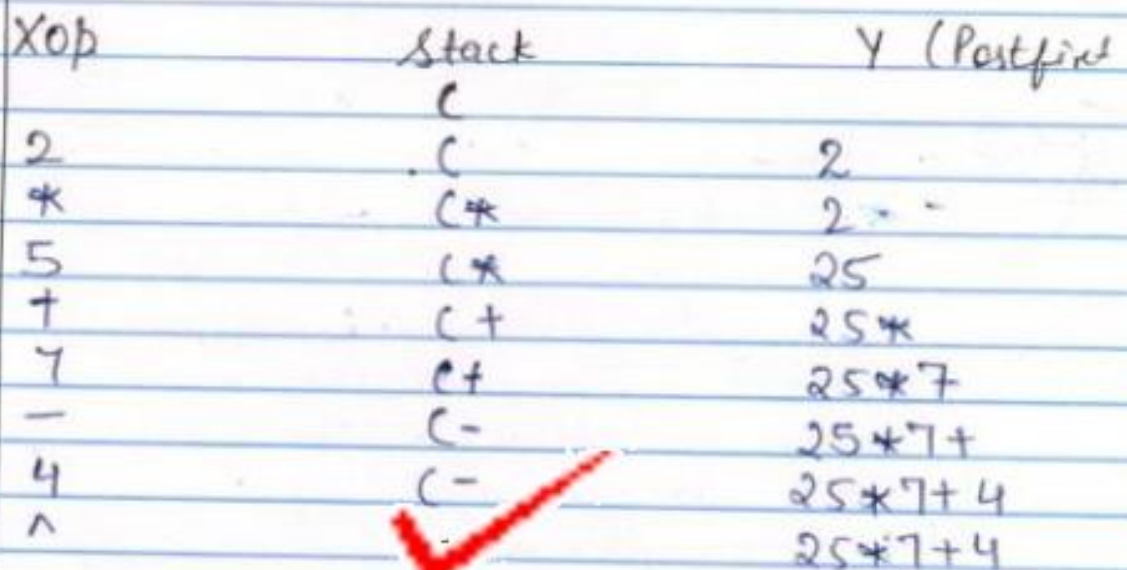 Xop Stack Y (Postfix
(
2 ( 2
* (* 2
5 (* 25
+ (+ 25*
7 (+ 25*7
- (- 25*7+
4 (- 25*7+4
^ 25*7+4